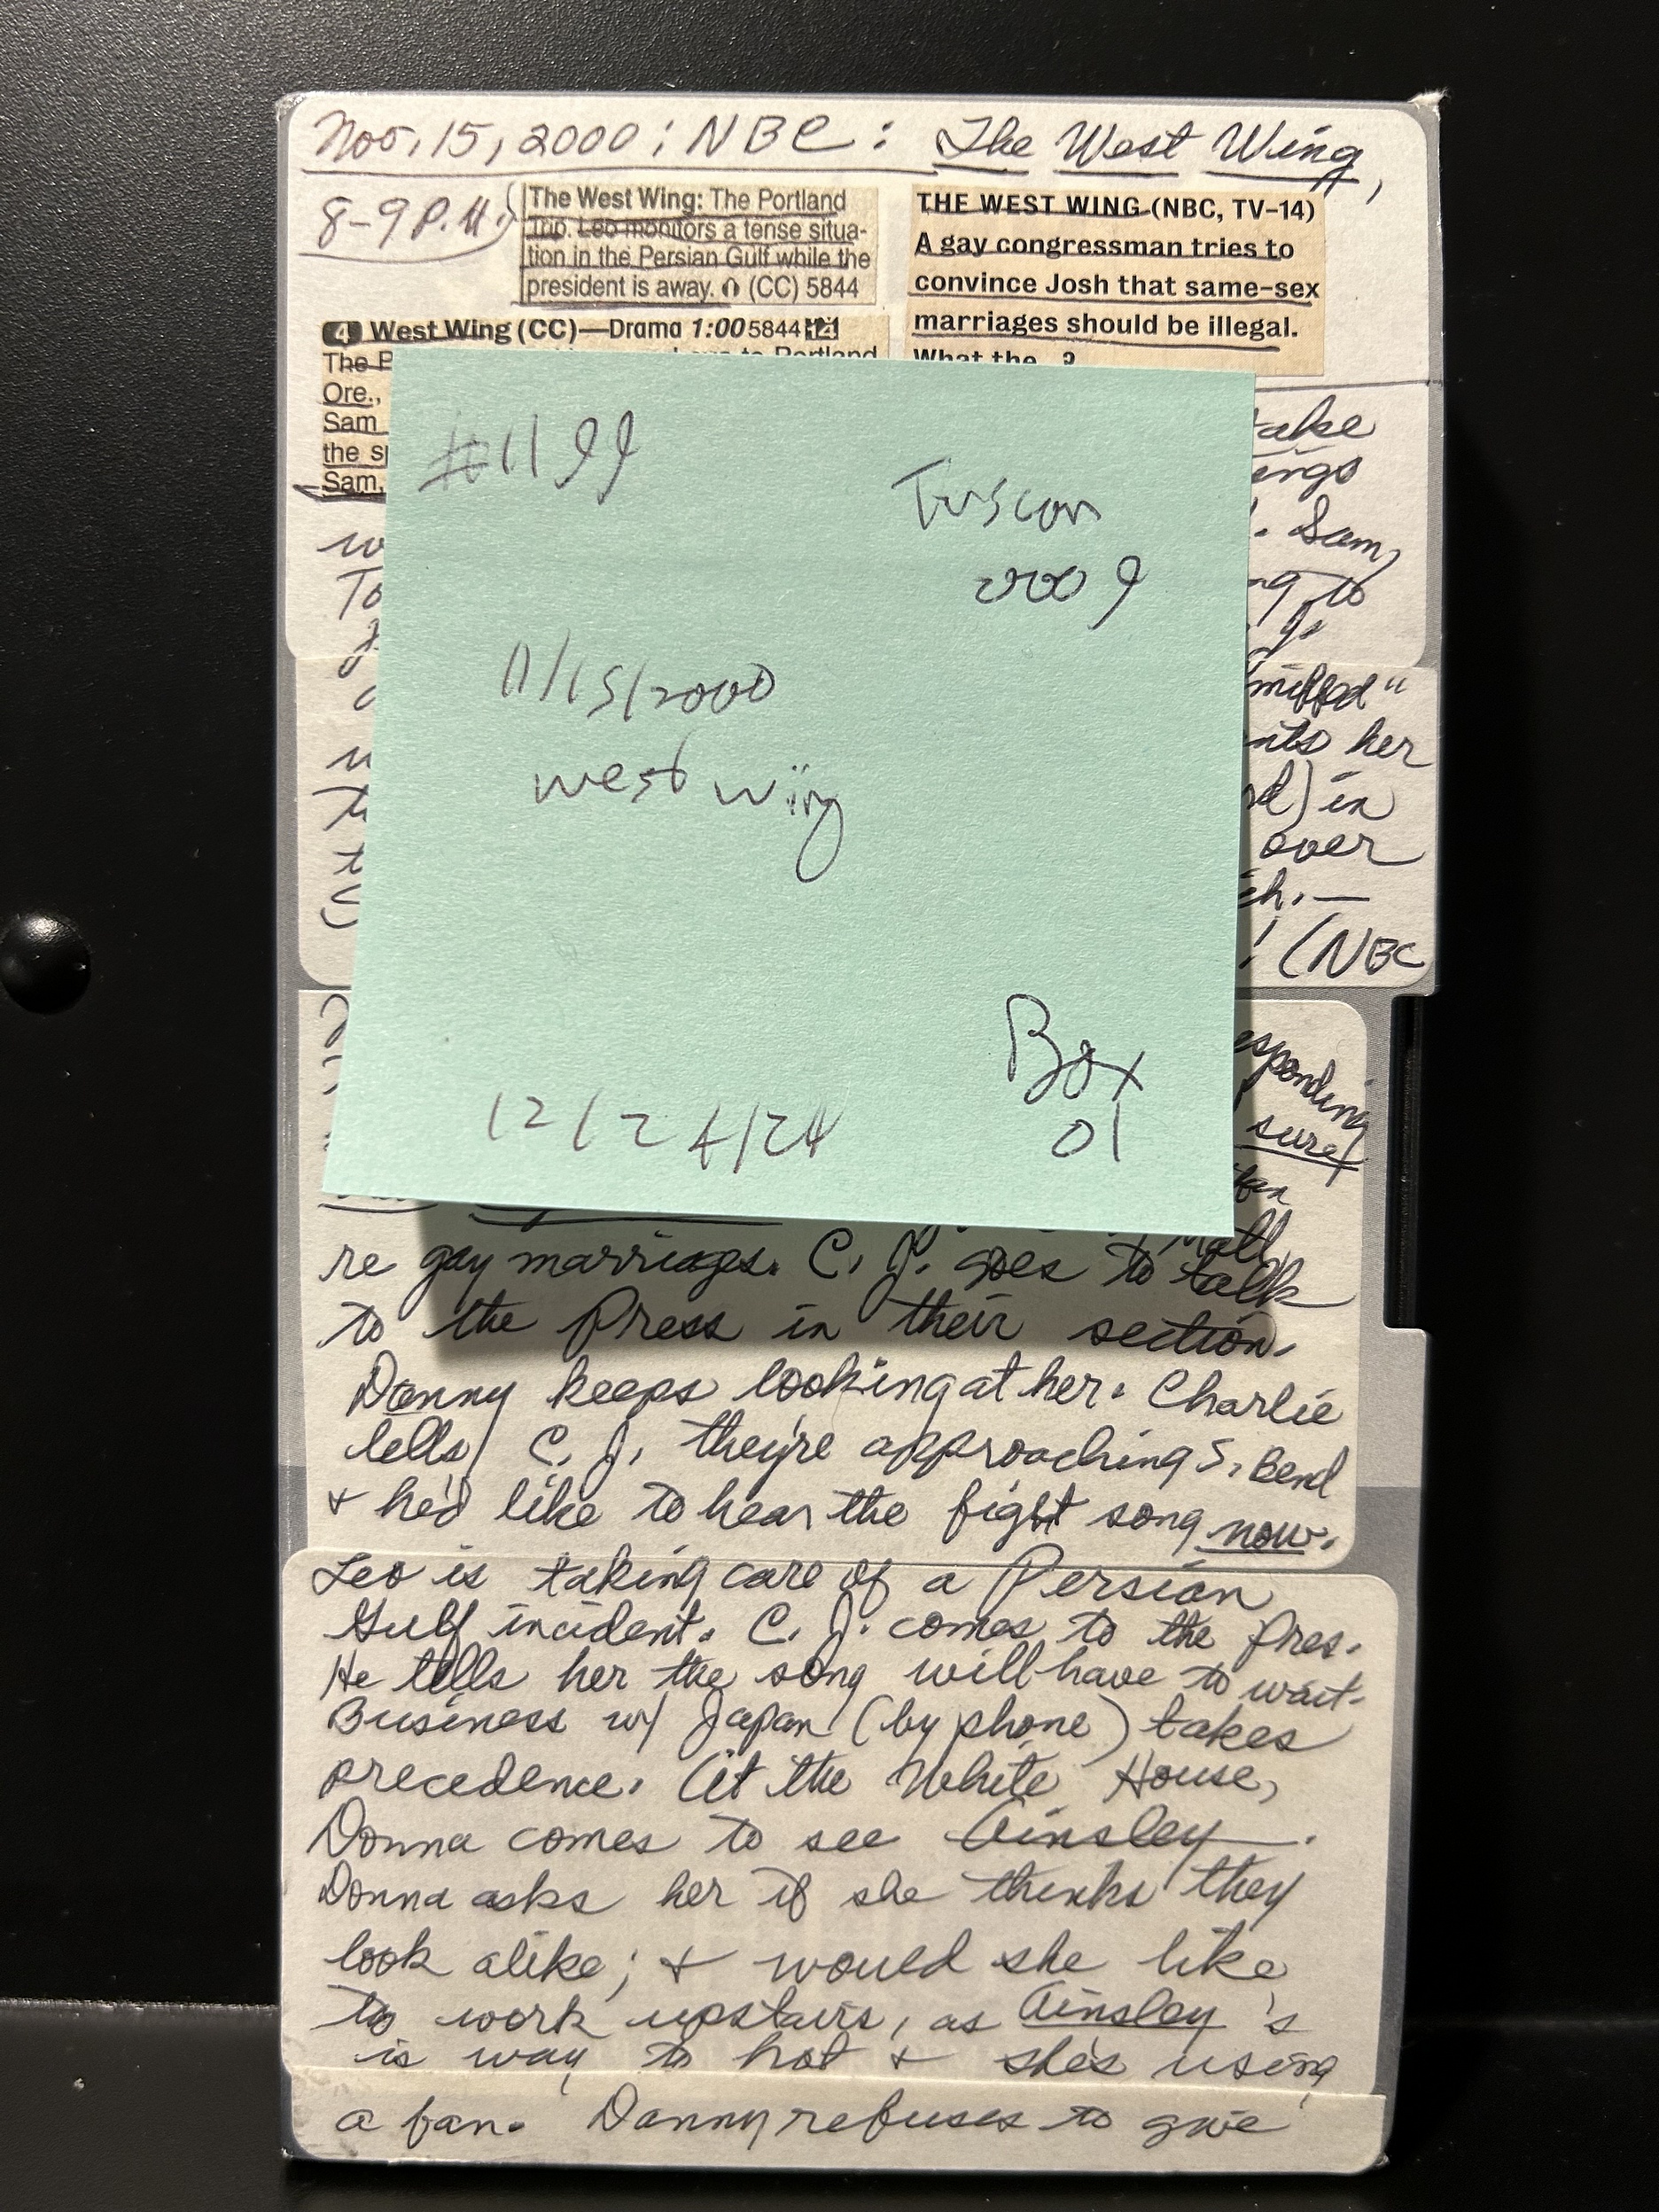 Nov. 15, 2000; NBC: The West Wing,
8-9 P.M.
The West Wing: The Portland
Trip. Leo monitors a tense situa-
tion in the Persian Gulf while the
president is away. (CC) 5844
THE WEST WING (NBC, TV-14)
A gay congressman tries to
convince Josh that same-sex
marriages should be illegal.
What the...?
4 West Wing (CC)—Drama 1:00 5844
The P
Ore.,
Sam
the s
Sam,
#1199
Tuscon
2009
11/15/2000
west wing
Box
01
12/24/24
take
ings
. Sam,
ng to
miffed"
nts her
in
over
ch.—
! (NBC
esponding
sure
re gay marriages. C. J. goes to talk
to the Press in their section.
Danny keeps looking at her. Charlie
tells C. J. they're approaching S. Bend
& he'd like to hear the fight song now.
Leo is taking care of a Persian
Gulf incident. C. J. comes to the Pres.
He tells her the song will have to wait.
Business w/ Japan (by phone) takes
precedence. At the White House,
Donna comes to see Ainsley.
Donna asks her if she thinks they
look alike; & would she like
to work upstairs, as Ainsley's
is way to hot & she's using
a fan. Danny refuses to give